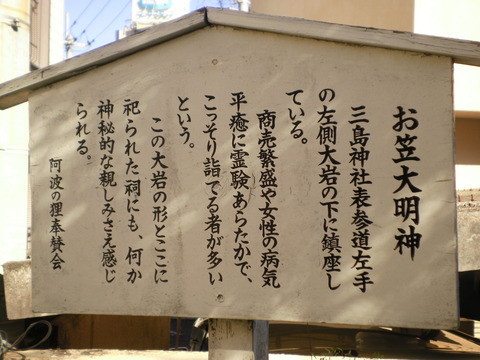 お笠大明神
三島神社表参道左手
の左側大岩の下に鎮座し
ている。
商売繁盛や女性の病気
平癒に霊験あらたかで、
こっそり詣でる者が多い
という。
この大岩の形とここに
祀られた祠にも、何か
神秘的な親しみさえ感じ
られる。
阿波の狸奉賛会